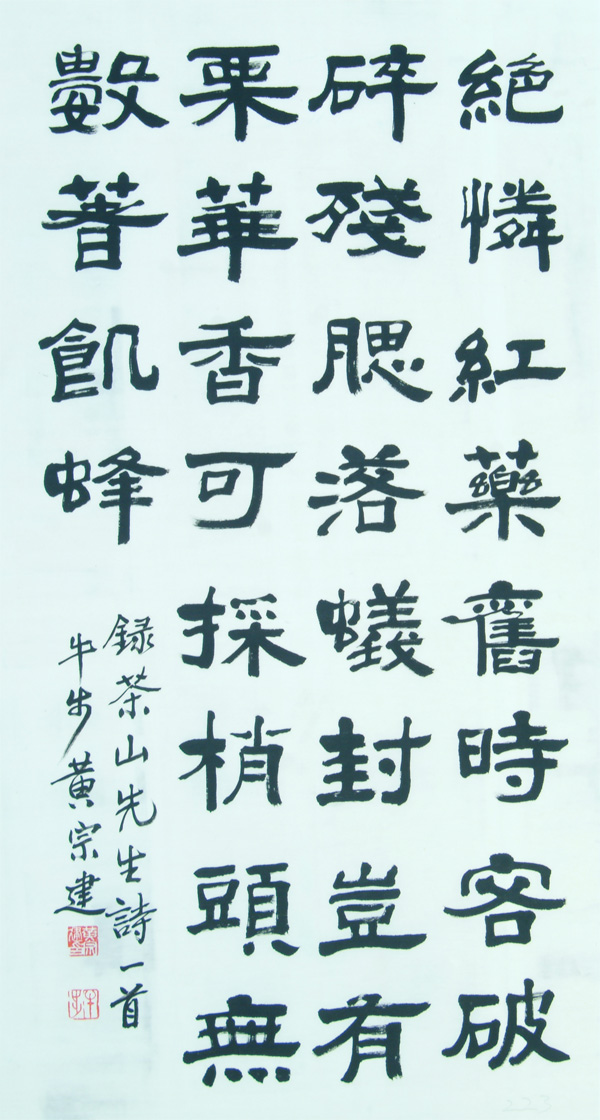 絶憐紅藥舊時容破
碎殘腮落蟻封豈有
栗華香可採梢頭無
數著飢蜂
録茶山先生詩一首
牛步黄宗建